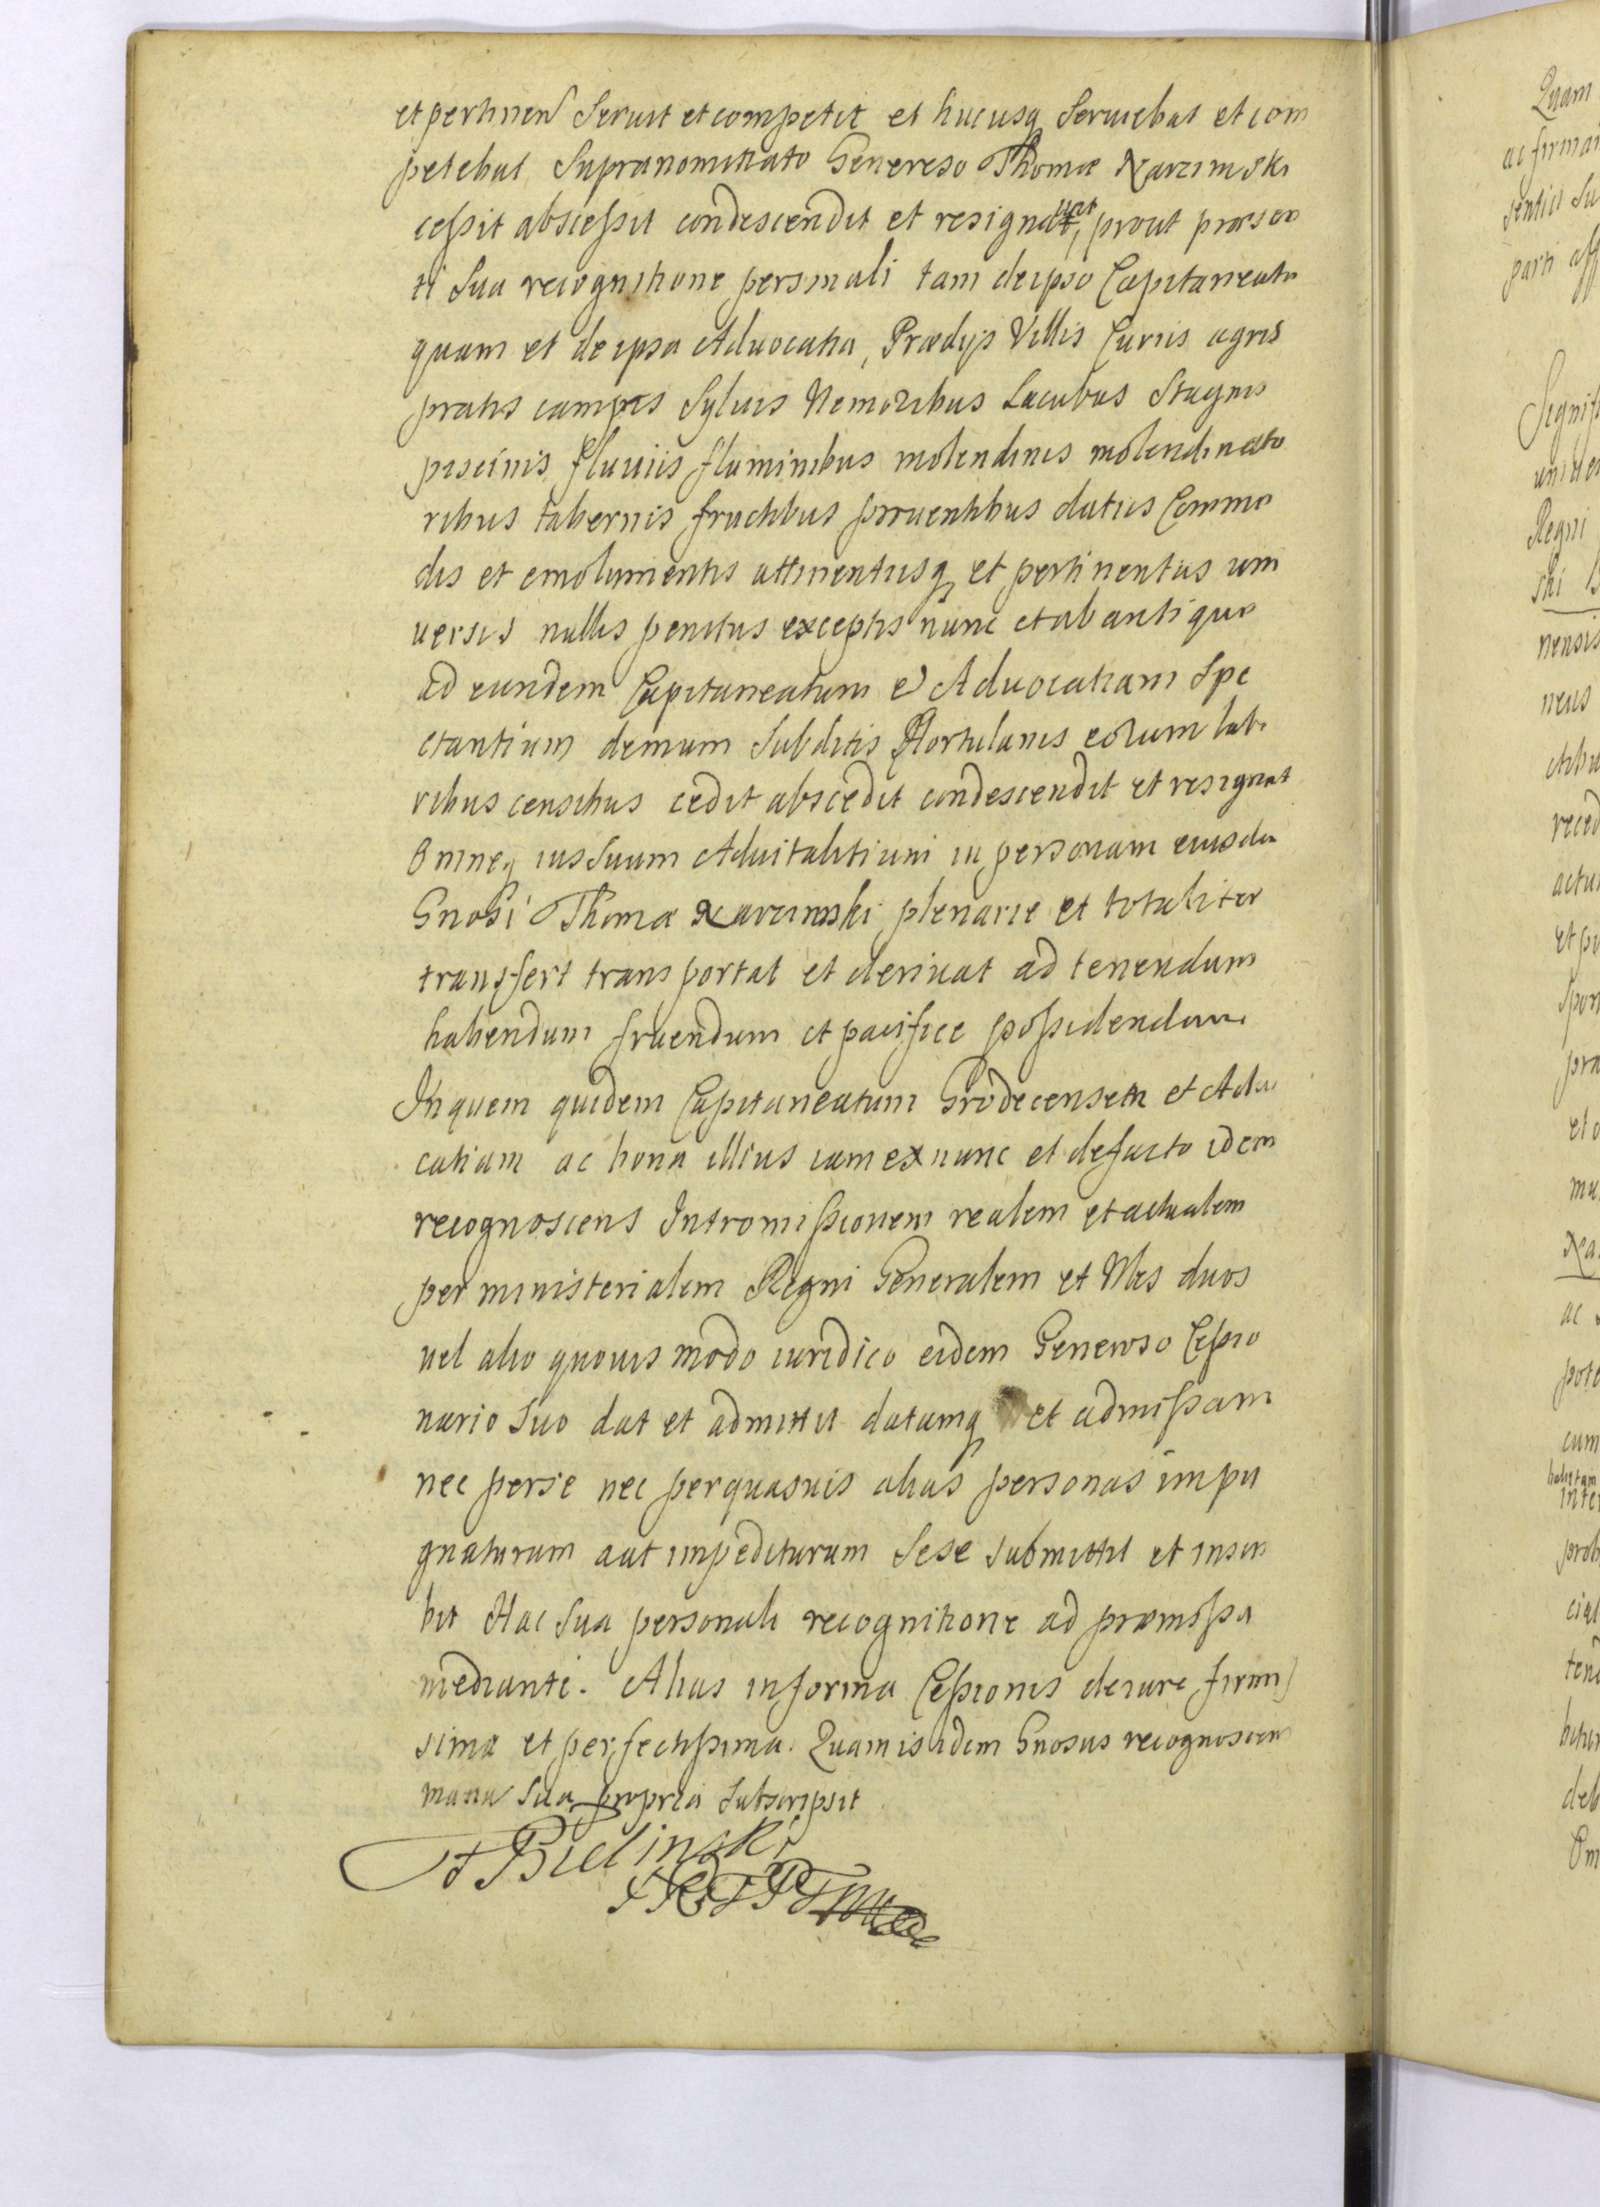 et pertinen Seruit et competit et hucusq Seruiebat et com
petebat Supranominato Genereso Thomæ Narzimski
cessit abscessit condescendit et resignauit, prout præsen
ti Sua recognitione personali tam de ipso Capitaneatu
quam et de ipsa Aduocatia, Prædijs Villis Curiis agris
pratis campis Syluis Nemoribus Lacubus Stagnis
piscinis fluuiis fluminibus molendinis molendinato
ribus tabernis fructibus prouentibus datiis Commo
dis et emolumentis attinentiisq et pertinentiis uni
uersis nullis penitus exceptis nunc et ab antiquo
ad eundem Capitaneatum et Aduocatiam Spe
ctantium demum Subditis Hortulanis eorum labo
ribus censibus cedit abscedit condescendit et resignat
Omneq ius Suum Aduitalitium in personam eiusdem
Gnosi Thomæ Narzimski plenarie et totaliter
transfert transportat et deriuat ad tenendum
habendum fruendum et pacifice possidendum
In quem quidem Capitaneatum Grodecensem et Aduo
catiam ac bona illius iam ex nunc et de facto idem
recognoscens Intromissionem realem et actualem
per ministerialem Regni Generalem et Nles duos
uel alio quouis modo iuridico eidem Generoso Cessio
nario suo dat et admittit datamq et admissam
nec per se nec per quasuis alias personas impu
gnaturum aut impediturum Sese submittit et inscri
bit Hac Sua personali recognitione ad præmissa
mediante. Alias in forma Cessionis de iure firmis
sima et perfectissima. Quam is idem Gnosus recognoscens
manu sua propria Subscripsit
Bielinski